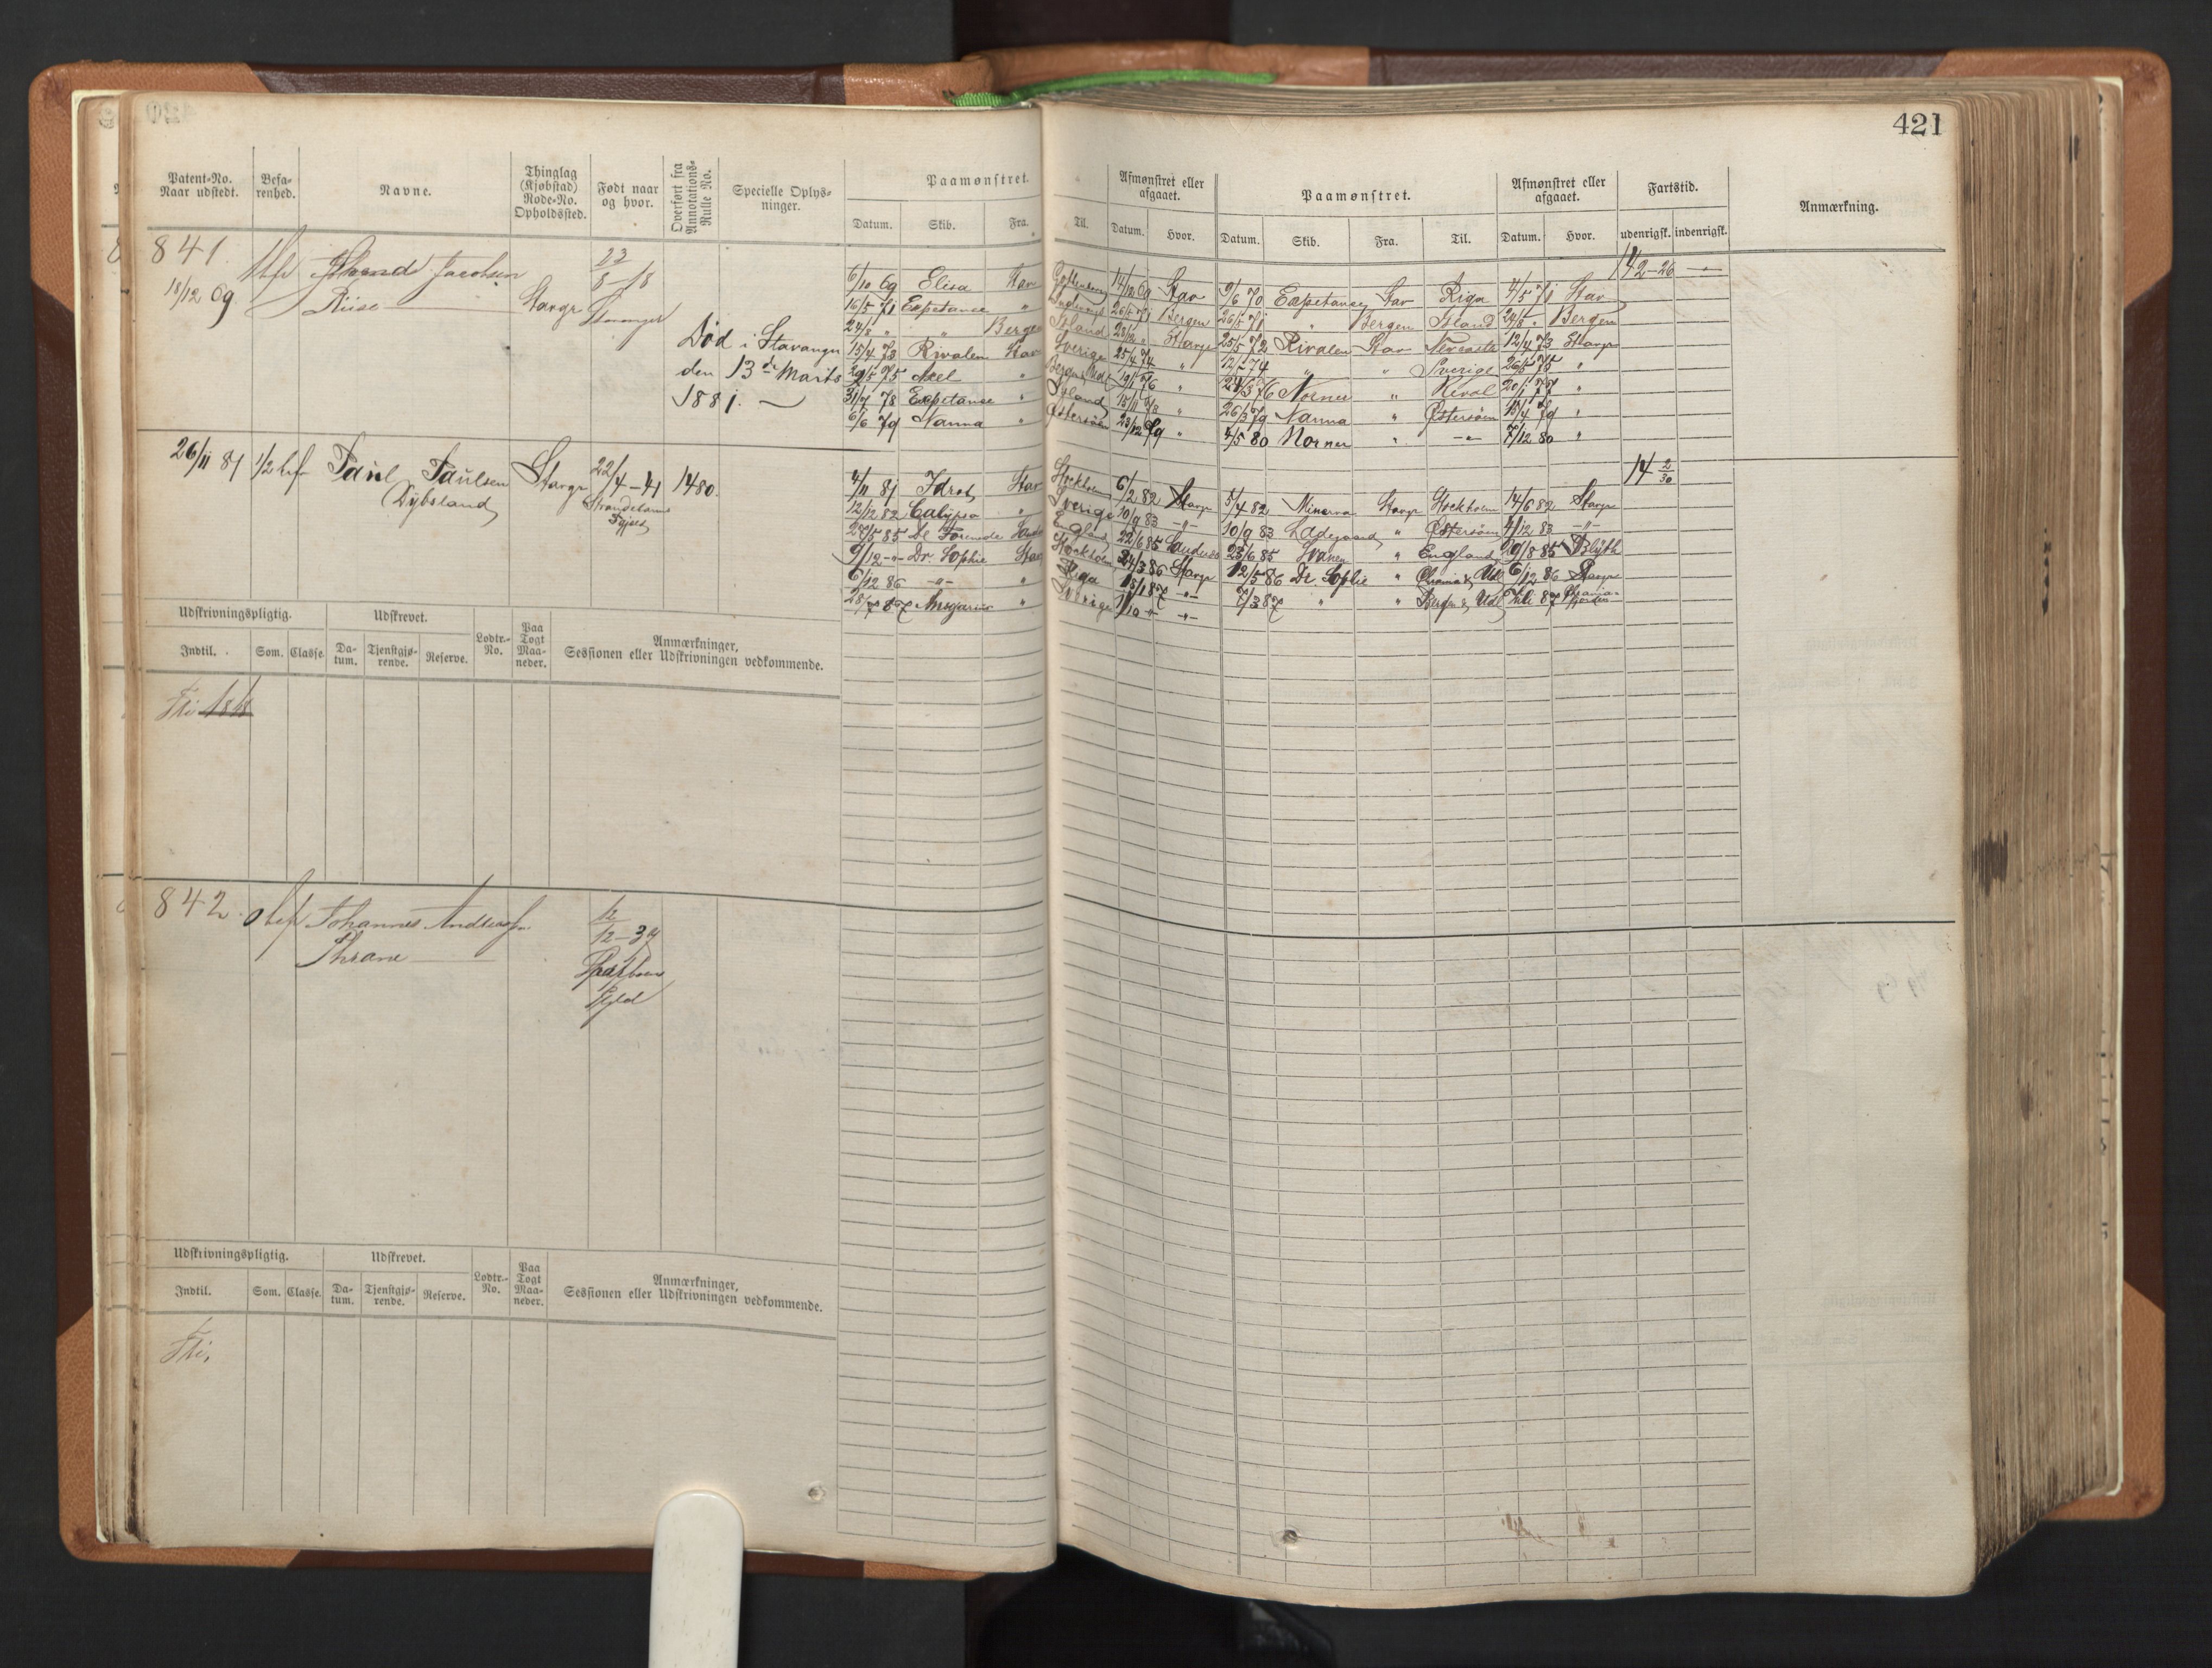 421
Patent-No. Naar udstedt. Befa- renhed. Navne. Thinglag (Kjøbstad) Rode-No. Opholdssted. Født naar og hvor. Overført fra Annotations- Rulle No. Specielle Oplys- ninger. Paamønstret. Afmønstret eller afgaaet. Paamønstret. Afmønstret eller afgaaet. Fartstid. Anmærkning.
Datum. Skib. Fra. Til. Datum. Hvor. Datum. Skib. Fra. Til. Datum. Hvor. udenrigsk. indenrigsk.
841.
18/12 69
Jacobsen
Riise
Stavgr
22
8-18
Stavanger
Død i Stavanger
den 13de Marts
1881. —
42-26
6/10 69 Elisa Stav 14/12 69 Stav 9/6 70 Expetanse Stav Riga 4/5 71 Stav
16/5 71 Expetanse " 26/5 71 Bergen 26/5 71 " Bergen Island 24/8 " Bergen
24/8 " " Bergen Island Stavgr 25/5 72 Rivalen Stav Newcastle 12/4 73 Stavgr
15/4 73 Rivalen Stav Sverige 25/4 74 " 12/5 74 " " Sverige 26/5 75 "
29/5 75 Axel " Bergen, Udl 19/1 76 " 24/3 76 Norner " Reval 20/1 77 "
31/7 78 Expetanse " Island 15/11 78 " 26/3 79 Nanna " Østersøen 15/4 79 "
6/6 79 Nanna " Østersøen 23/12 79 " 4/5 80 Norner " -"- 7/12 80 "
26/11 81 1/2 bef Paul Paulsen
(Dybsland)
Stavgr
22/4-41
1480.
14 2/30
4/11 81 Idræt Stav Stockholm 6/2 82 Stavgr 5/4 82 Minerva Stavgr Stockholm 14/6 82 Stavgr
12/12 82 Calypso " Sverige 10/9 83 -"- 10/9 83 Ladegaard " Østersøen 4/12 83 -"-
27/5 85 De Forenede England 22/6 85 23/6 85 Svanen " England 29/8 85 Blyth
9/12 -"- Dr. Sophie Stav Stockholm 24/3 86 Stavgr 12/5 86 Dr. Sophie " Udl 6/12 86 Stavgr
6/12 86 -"- " Riga 15/1 87 -"- 7/3 87 " " Bergen, Udl 87
28/7 87 Ansgarius " Sverige 1/10 -"- -"-
Udskrivningspligtig. Udskrevet. Lodtr.- No. Paa Togt Maa- neder. Anmærkninger, Sessionen eller Udskrivningen vedkommende.
Indtil. Som. Classe. Da- tum. Tjenstgjø- rende. Reserve.
Fri 1818
842.
Johannes Andersen
Thrane
12
12-37
Udskrivningspligtig. Udskrevet. Lodtr.- No. Paa Togt Maa- neder. Anmærkninger, Sessionen eller Udskrivningen vedkommende.
Indtil. Som. Classe. Da- tum. Tjenstgjø- rende. Reserve.
Fri,